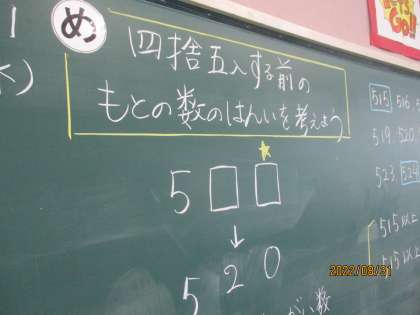 め
四捨五入する前の
もとの数のはんいを考えよう
5□□
↓
520
がい数
515, 516, 5
519, 520,
523, 524
515以上
515以上
2022/08/31